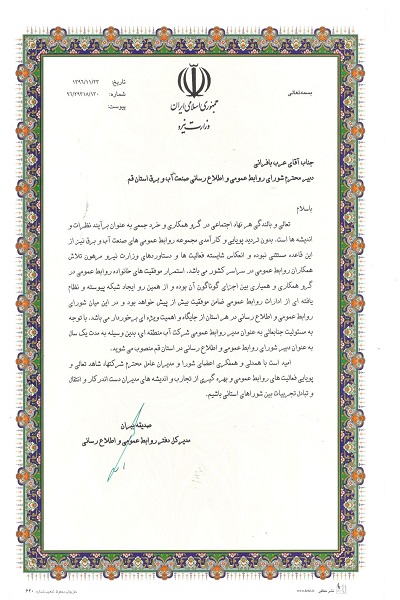 بسمه‌تعالی
جمهوری اسلامی ایران
وزارت نیرو
تاریخ: ۱۳۹۶/۱۱/۲۳
شماره: ۹۶/۲۹۳۱۸/۱۳۰
پیوست:
جناب آقای عرب بافرانی
دبیر محترم شورای روابط عمومی و اطلاع رسانی صنعت آب و برق استان قم
باسلام
تعالی و بالندگی هر نهاد اجتماعی در گرو همکاری و خرد جمعی به عنوان برآیند نظرات و
اندیشه ها است. بدون تردید پویایی و کارآمدی مجموعه روابط عمومی های صنعت آب و برق نیز از
این قاعده مستثنی نبوده و انعکاس شایسته فعالیت ها و دستاوردهای وزارت نیرو مرهون تلاش
همکاران روابط عمومی در سراسر کشور می باشد. استمرار موفقیت های خانواده روابط عمومی در
گرو همکاری و همیاری بین اجزای گوناگون آن بوده و از همین رو ایجاد شبکه پیوسته و نظام
یافته ای از ادارات روابط عمومی ضامن موفقیت بیش از پیش خواهد بود و در این میان شورای
روابط عمومی و اطلاع رسانی در هر استان از جایگاه و اهمیت ویژه ای برخوردار می باشد. با توجه
به مسئولیت جنابعالی به عنوان مدیر روابط عمومی شرکت آب منطقه ای، بدین وسیله به مدت یک سال
به عنوان دبیر شورای روابط عمومی و اطلاع رسانی در استان قم منصوب می شوید.
امید است با همدلی و همفکری اعضای شورا و مدیران عامل محترم شرکتها، شاهد تعالی و
پویایی فعالیت های روابط عمومی و بهره گیری از تجارب و اندیشه های مدیران دست اندرکار و انتقال
و تبادل تجربیات بین شوراهای استانی باشیم.
صدیقه ببران
مدیرکل دفتر روابط عمومی و اطلاع رسانی
۶۲۰